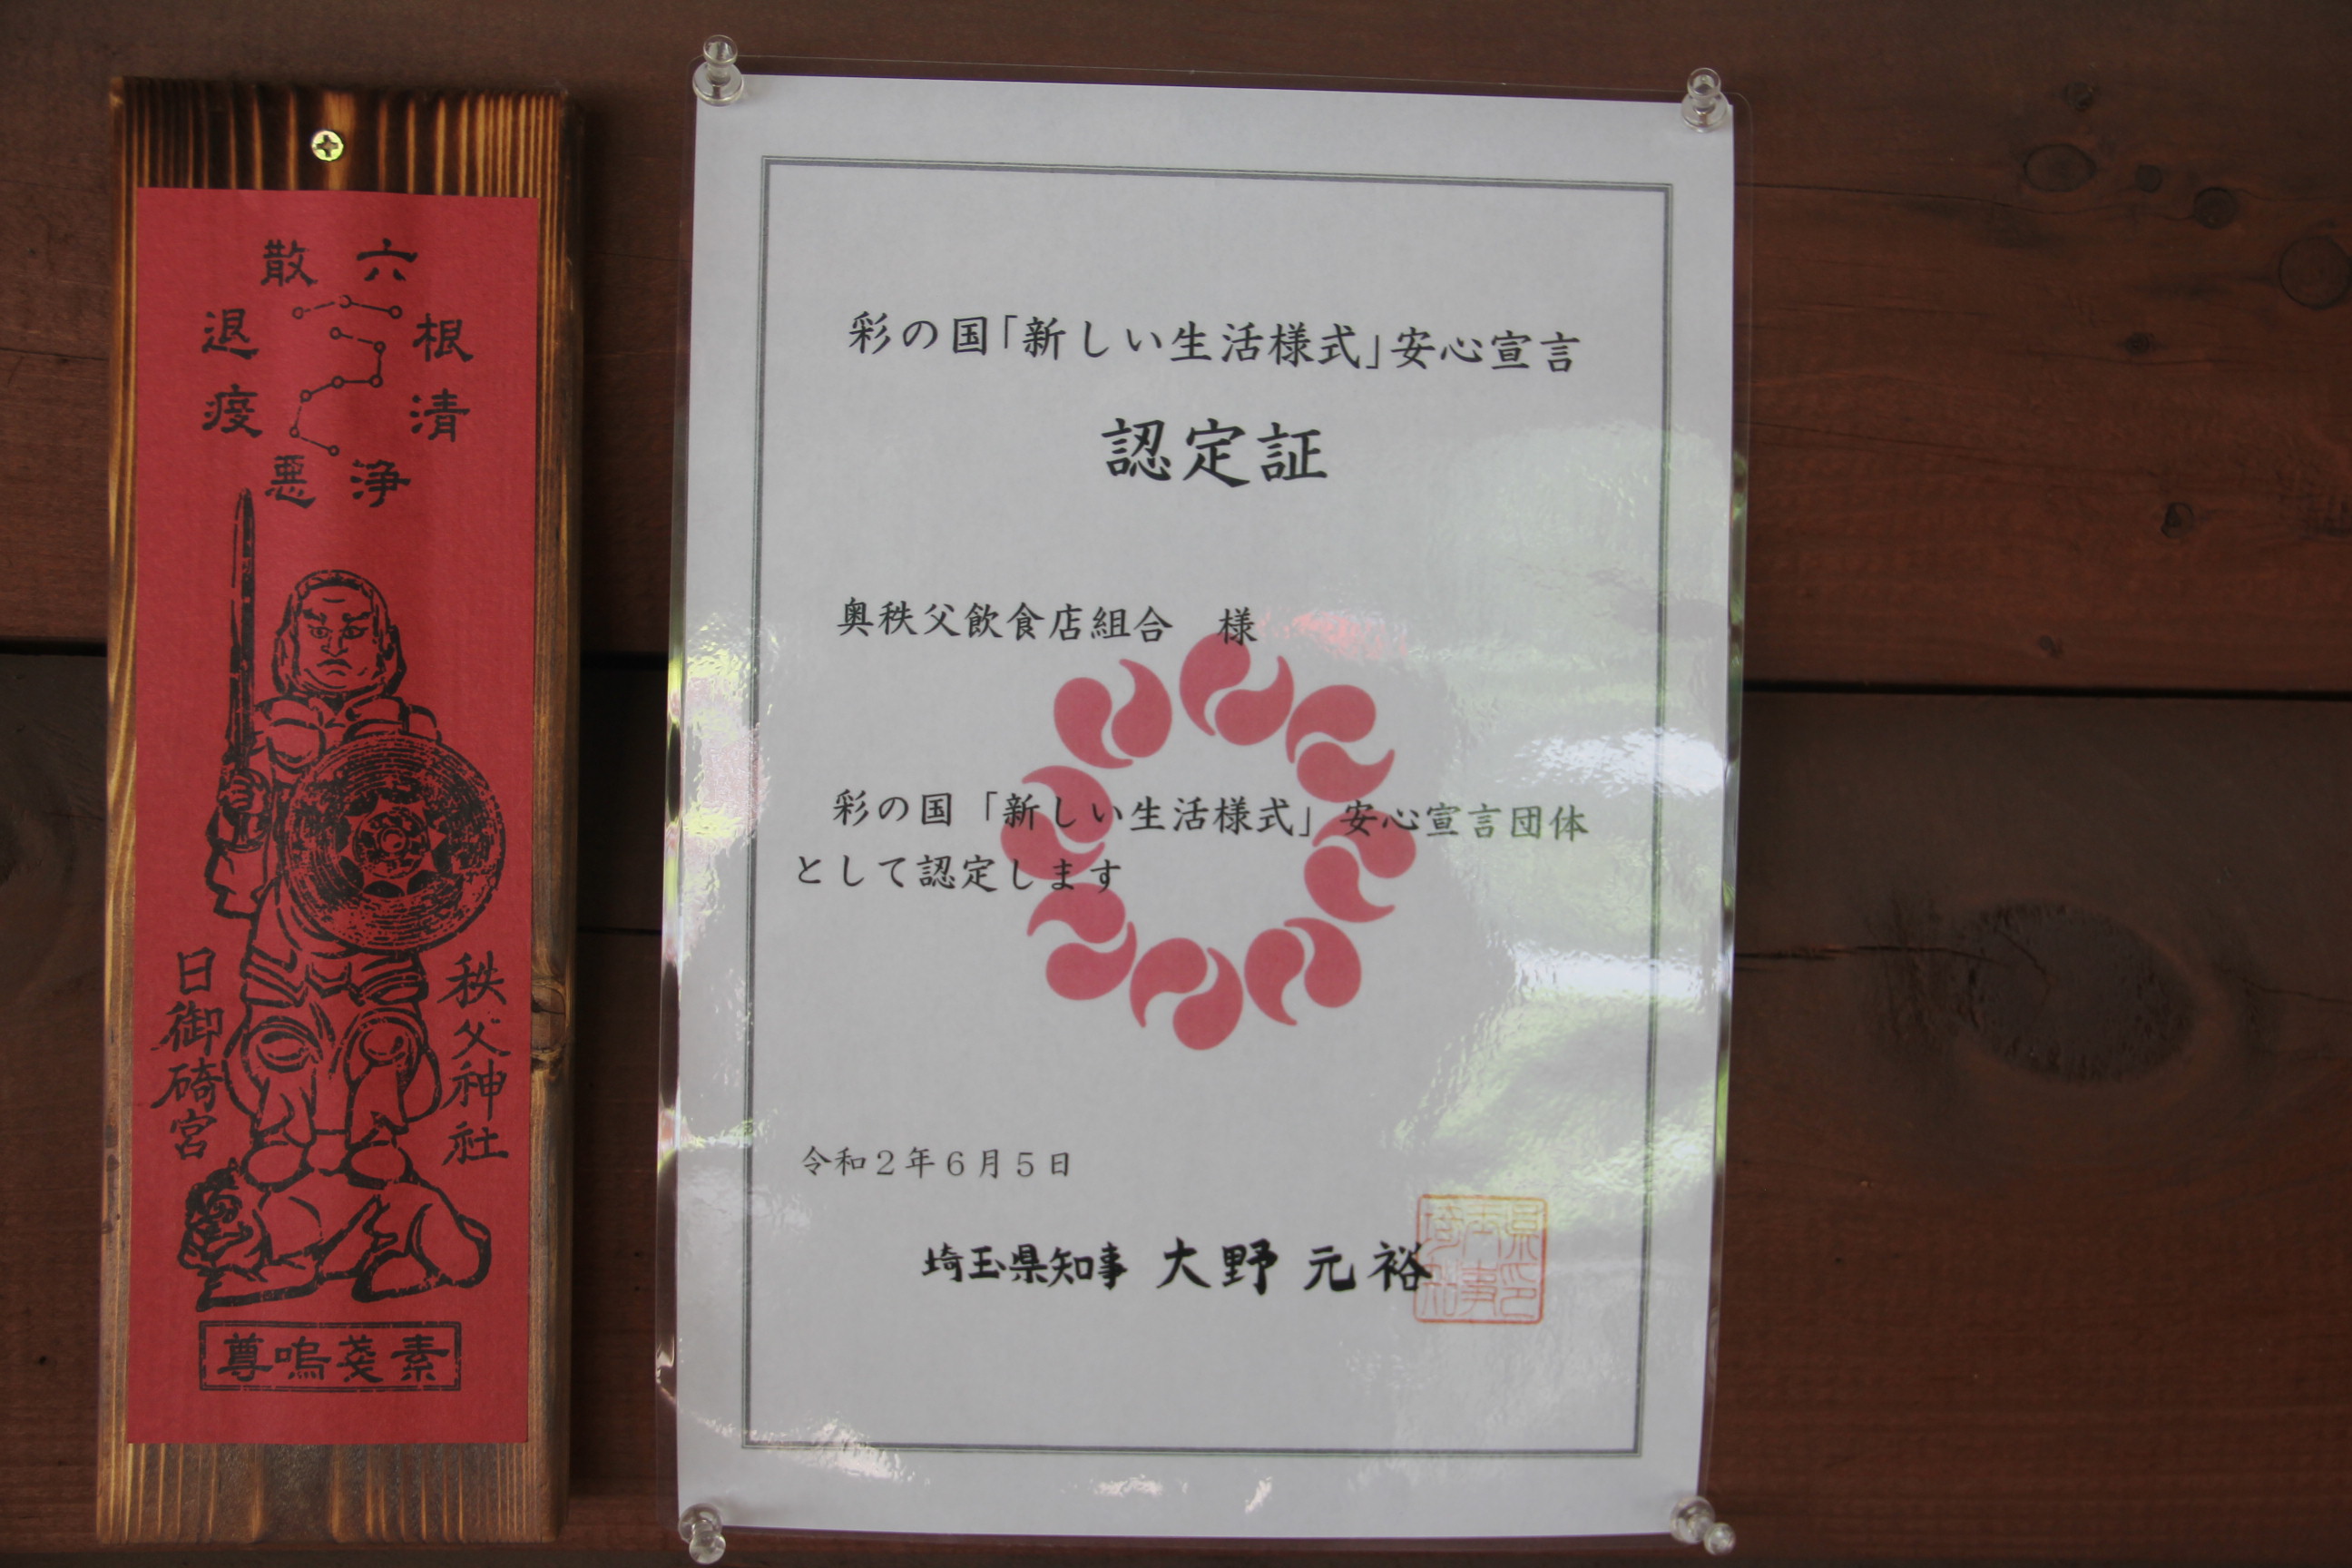 六根清浄
悪疫退散
秩父神社
日御碕宮
尊嗚戔素
彩の国「新しい生活様式」安心宣言
認定証
奥秩父飲食店組合 様
彩の国「新しい生活様式」安心宣言団体
として認定します
令和2年6月5日
埼玉県知事 大野元裕